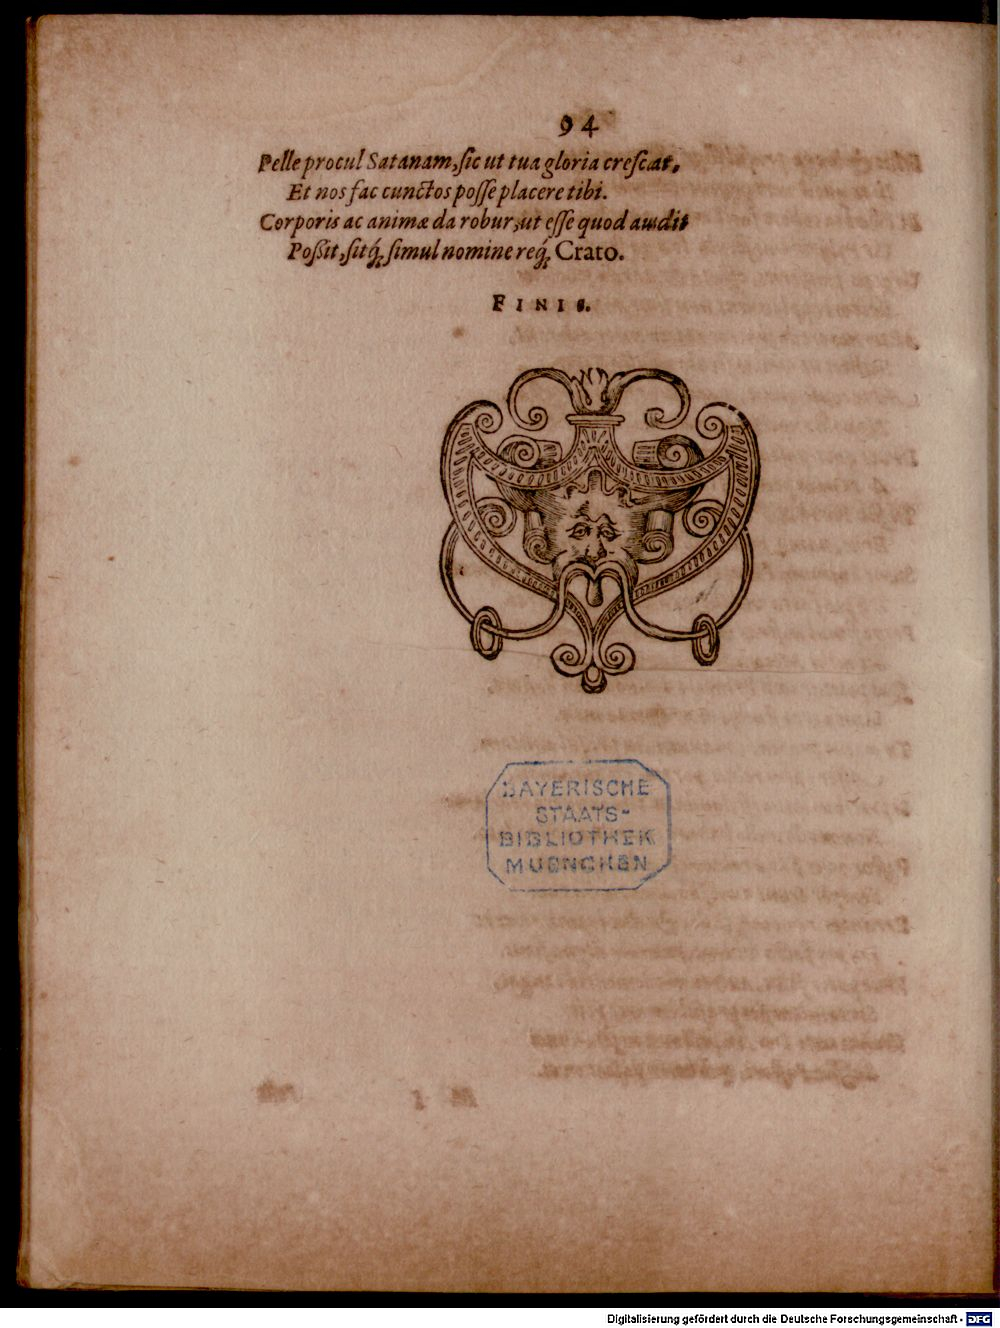 94
Pelle procul Satanam, sic ut tua gloria crescat,
Et nos fac cunctos posse placere tibi.
Corporis ac animæ da robur, ut esse quod audit
Poßit, sitq́; simul nomine req́; Crato.
FINIS.
BAYERISCHE
STAATS-
BIBLIOTHEK
MUENCHEN
Digitalisierung gefördert durch die Deutsche Forschungsgemeinschaft - DFG